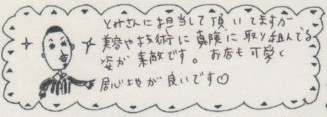 とみさんにお担当して頂いてますが
美容や技術に真険に取り組んでる
姿が素敵です。お店も可愛く
居心地が良いです♡